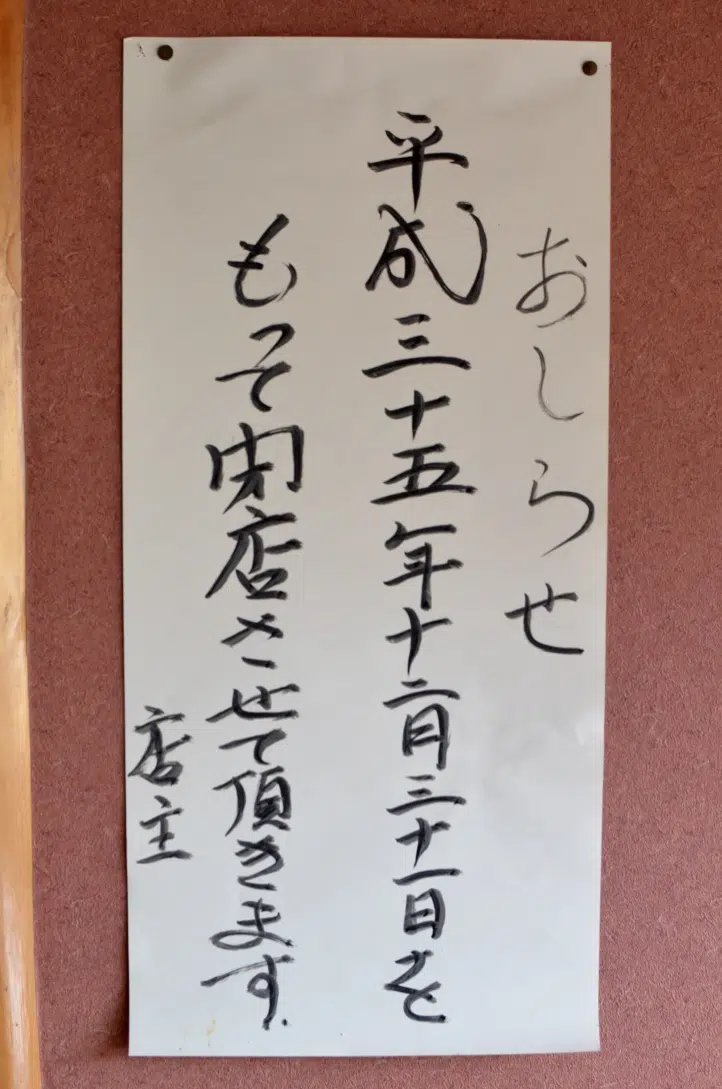 おしらせ
平成三十五年十二月三十一日を
もって閉店させて頂きます.
店主